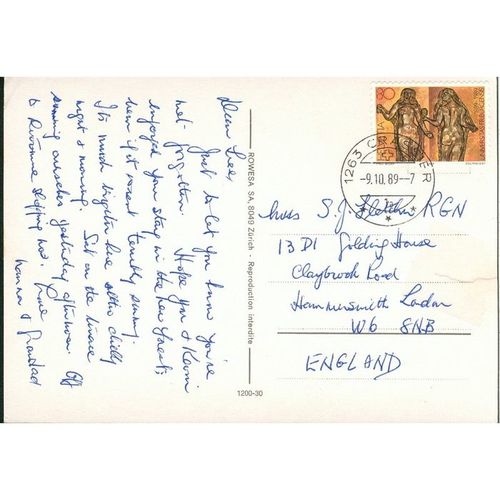 Just to let you know you're
not forgotten. Hope you & Kevin
enjoyed your stay in the New Forest
here it wasn't terribly sunny.
It's much brighter here altho' chilly
night & morning. Sat on the terrace
sunning ourselves yesterday afternoon. Off
to shopping now. Love
Grandad
ROWESA SA, 8049 Zürich - Reproduction interdite
1200-30
80
1263 CR ER
-9.10.89--7
Miss S.J. RGN
13 D1 Golding House
Claybrook Road
Hammersmith London
W6 8NB
ENGLAND